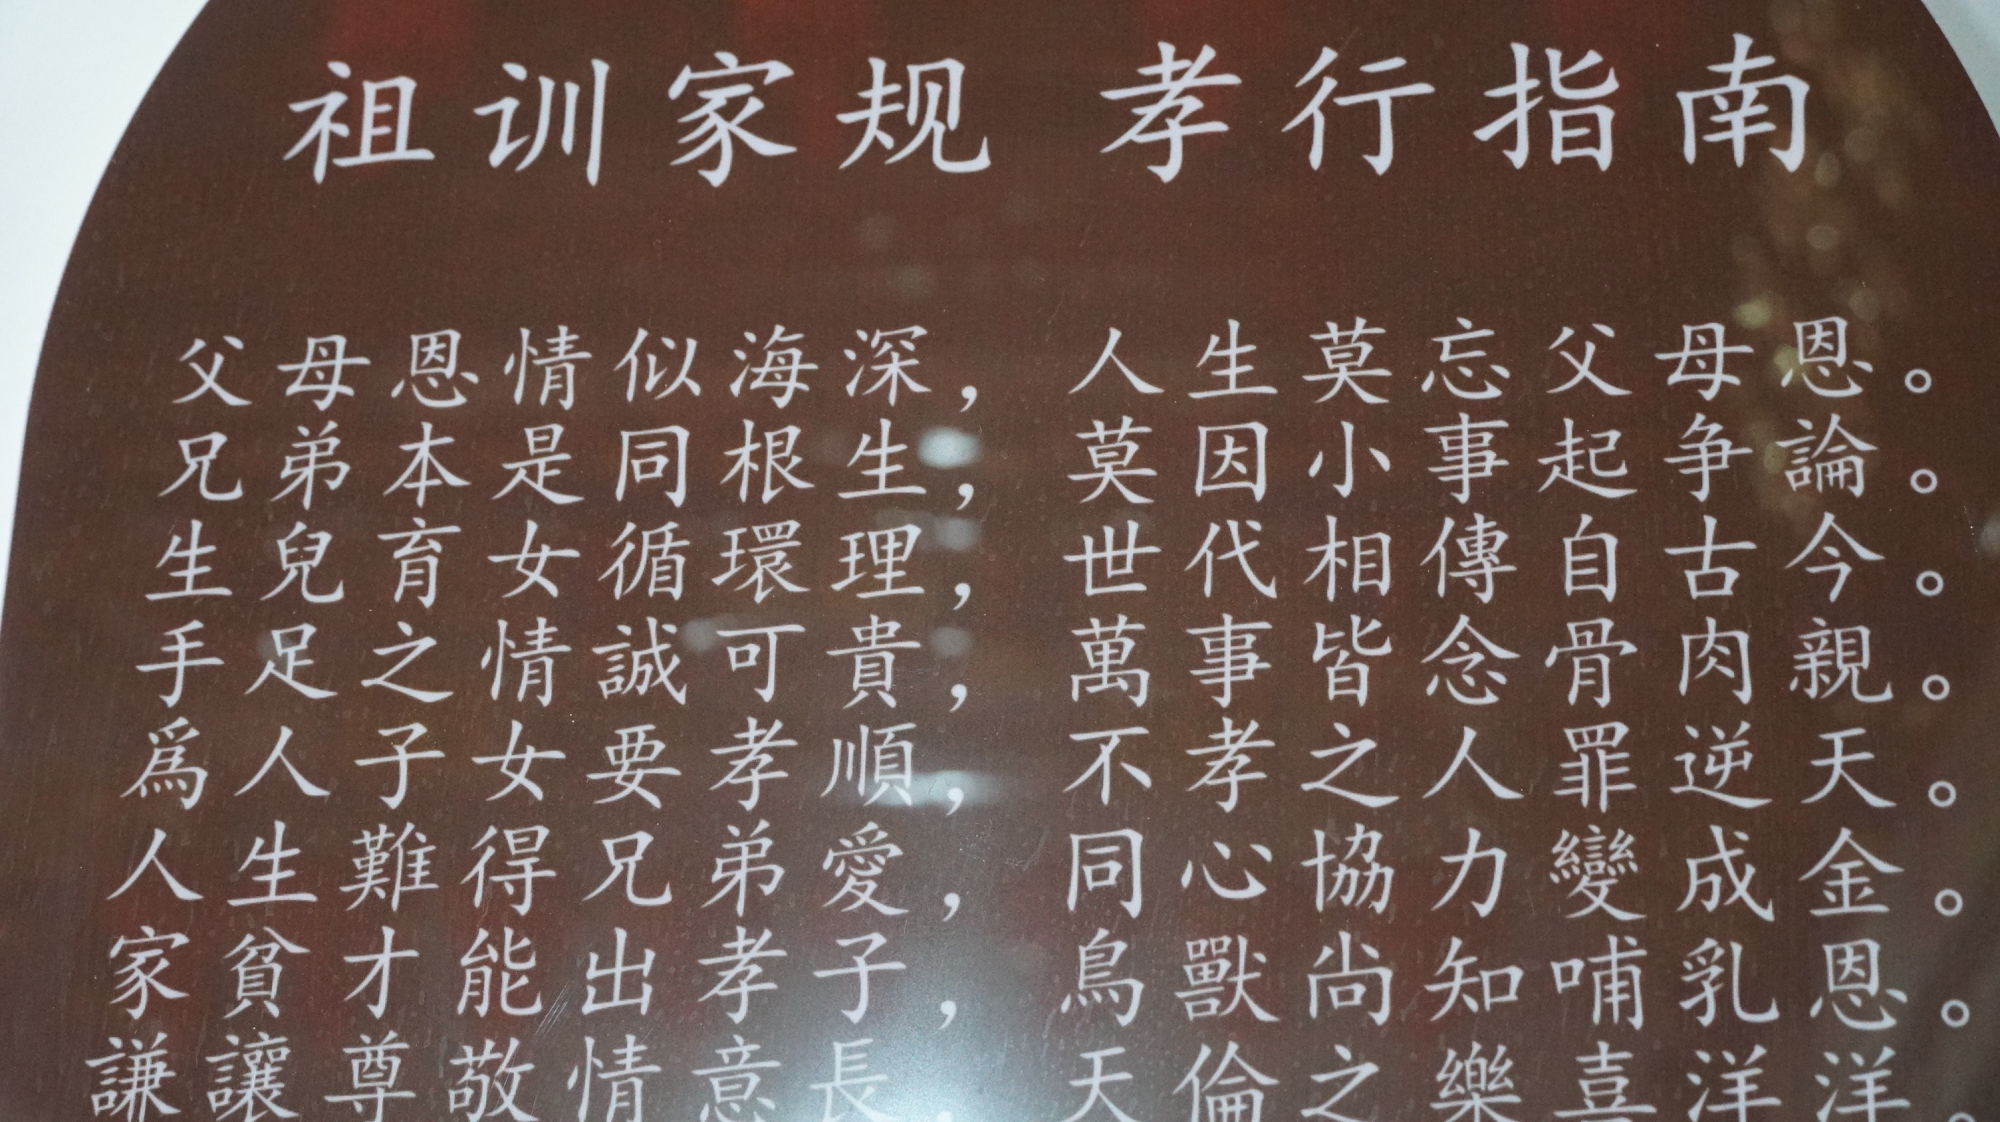 祖训家规 孝行指南
父母恩情似海深，人生莫忘父母恩。
兄弟本是同根生，莫因小事起争論。
生兒育女循環理，世代相傳自古今。
手足之情誠可貴，萬事皆念骨肉親。
爲人子女要孝順，不孝之人罪逆天。
人生難得兄弟愛，同心協力變成金。
家貧才能出孝子，鳥獸尚知哺乳恩。
謙讓尊敬情意長，天倫之樂喜洋洋。